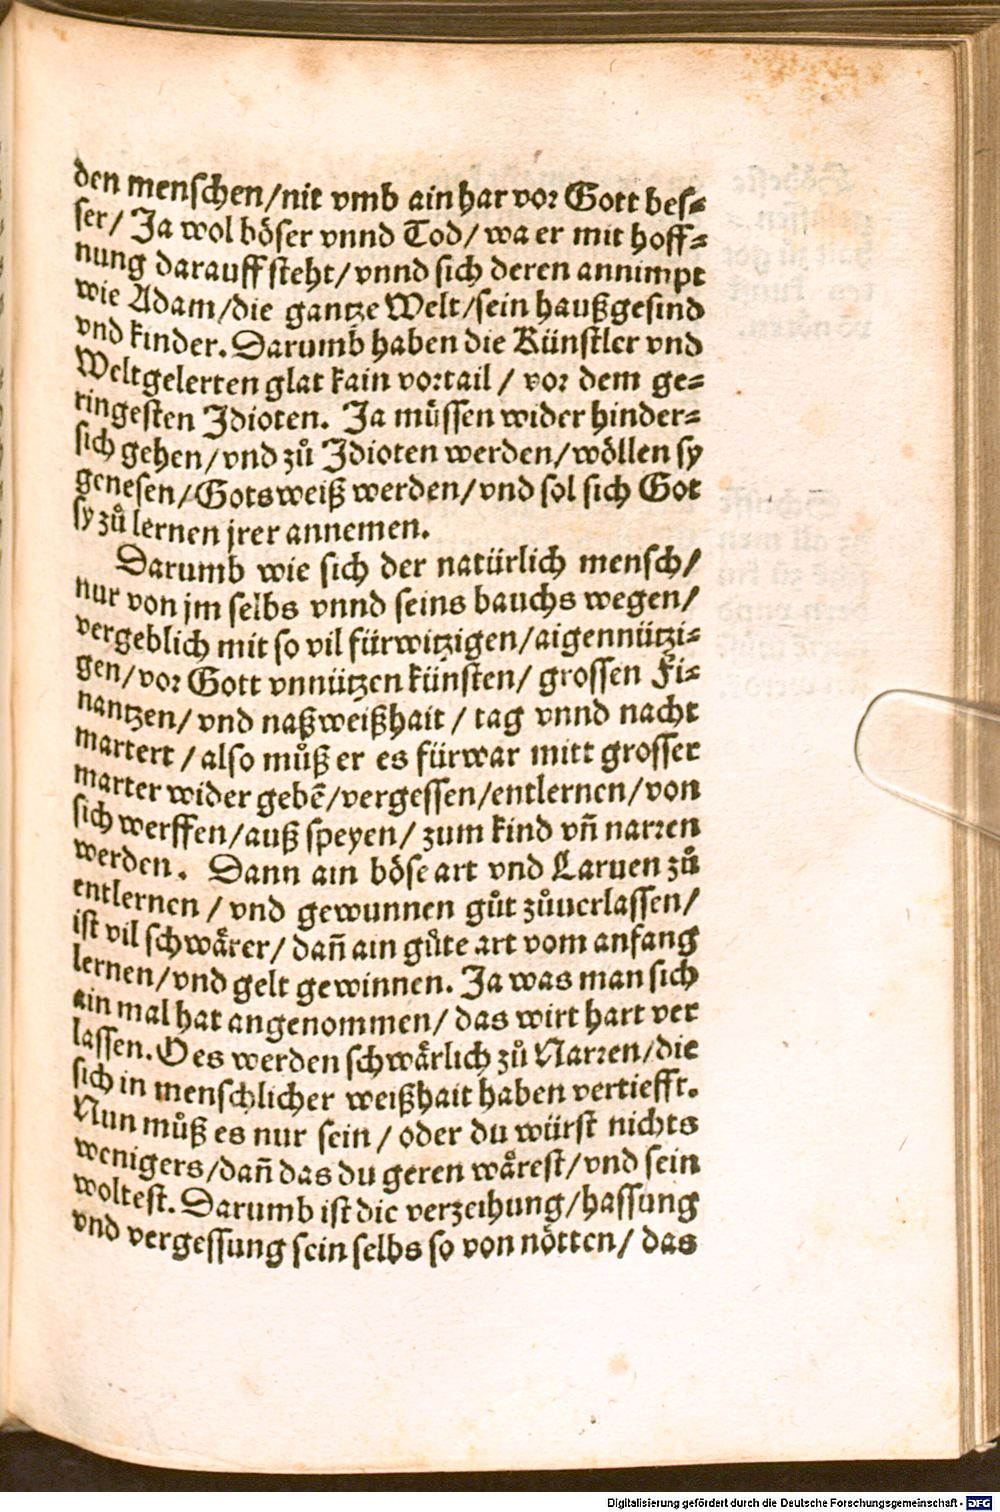 den menschen/nit vmb ain har vor Gott bes⸗
ser/ Ja wol böser vnnd Tod/ wa er mit hoff⸗
nung darauff steht/ vnnd sich deren annimpt
wie Adam/die gantze Welt/sein haußgesind
vnd kinder. Darumb haben die Künstler vnd
Weltgelerten glat kain vortail / vor dem ge⸗
ringesten Idioten. Ja müssen wider hinder⸗
sich gehen/vnd zů Idioten werden/wöllen sy
genesen/Gotsweiß werden/vnd sol sich Got
sy zů lernen jrer annemen.
Darumb wie sich der natürlich mensch/
nur von jm selbs vnnd seins bauchs wegen/
vergeblich mit so vil fürwitzigen/aigennützi⸗
gen/vor Gott vnnützen künsten/ grossen Fi⸗
nantzen/ vnd naßweißhait / tag vnnd nacht
martert / also můß er es fürwar mitt grosser
marter wider gebē/vergessen/entlernen/von
sich werffen/auß speyen/ zum kind vñ narren
werden. Dann ain böse art vnd Laruen zů
entlernen / vnd gewunnen gůt zůuerlassen/
ist vil schwärer/ dañ ain gůte art vom anfang
lernen/vnd gelt gewinnen. Ja was man sich
ain mal hat angenommen/ das wirt hart ver
lassen. O es werden schwärlich zů Narren/die
sich in menschlicher weißhait haben vertiefft.
Nun můß es nur sein / oder du würst nichts
wenigers/dañ das du geren wärest/vnd sein
woltest. Darumb ist die verzeihung/hassung
vnd vergessung sein selbs so von nötten/ das
Digitalisierung gefördert durch die Deutsche Forschungsgemeinschaft - DFG